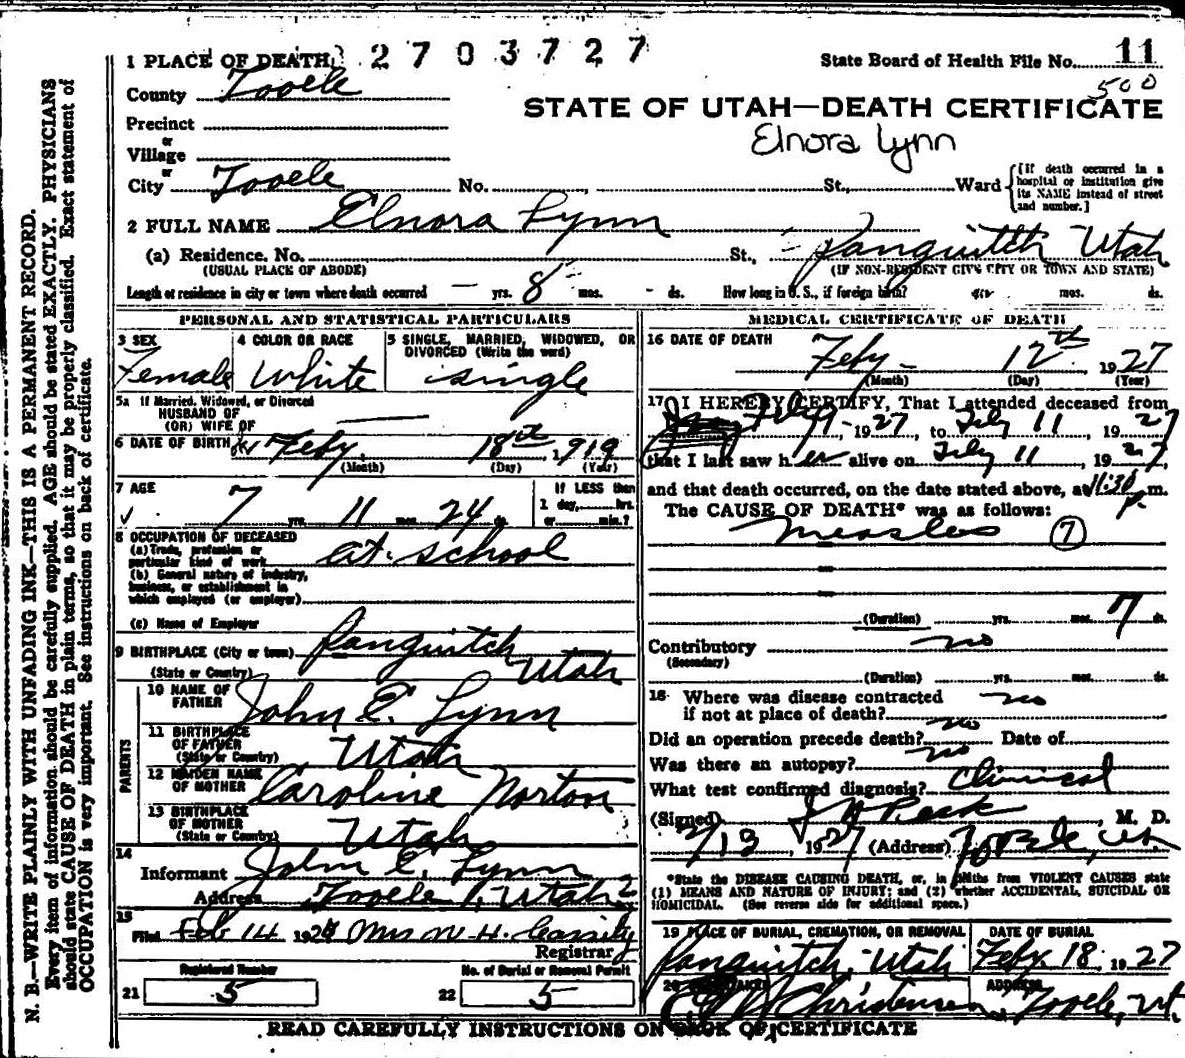 1 PLACE OF DEATH 2703727
State Board of Health File No. 11
500
County Tooele
STATE OF UTAH—DEATH CERTIFICATE
Elnora Lynn
Precinct
or
Village
or
City Tooele No. St., Ward
[If death occurred in a hospital or institution give its NAME instead of street and number.]
2 FULL NAME Elnora Lynn
(a) Residence. No. St., Panguitch Utah
(USUAL PLACE OF ABODE) (IF NON-RESIDENT GIVE CITY OR TOWN AND STATE)
Length of residence in city or town where death occurred — yrs. 8 mos. - ds. How long in U. S., if foreign birth? mos. ds.
PERSONAL AND STATISTICAL PARTICULARS
3 SEX
Female
4 COLOR OR RACE
White
5 SINGLE, MARRIED, WIDOWED, OR DIVORCED (Write the word)
single
5a If Married, Widowed, or Divorced
HUSBAND OF
(OR) WIFE OF
6 DATE OF BIRTH Feby 18th 1919
(Month) (Day) (Year)
7 AGE
7 yrs. 11 mos. 24
If LESS than
1 day, hrs.
or min.?
8 OCCUPATION OF DECEASED
(a) Trade, profession or particular kind of work at school
(b) General nature of industry, business, or establishment in which employed (or employer)
(c) Name of Employer
9 BIRTHPLACE (City or town) Panguitch
(State or Country) Utah
PARENTS
10 NAME OF FATHER John E. Lynn
11 BIRTHPLACE OF FATHER
(State or Country) Utah
12 MAIDEN NAME OF MOTHER Caroline Norton
13 BIRTHPLACE OF MOTHER
(State or Country) Utah
14
Informant John E. Lynn
Address Tooele, Utah
15
Filed Feb 14 192 Mrs N. H. Cassity
Registrar
Registered Number
21 5
No. of Burial or Removal Permit
22 5
MEDICAL CERTIFICATE OF DEATH
16 DATE OF DEATH
Feby 12th 1927
(Month) (Day) (Year)
17 I HEREBY CERTIFY, That I attended deceased from
1927, to Feby 11, 1927
that I last saw her alive on Feby 11, 1927,
and that death occurred, on the date stated above, at 11:30 P. m.
The CAUSE OF DEATH* was as follows:
Measles 7
(Duration) yrs. mos. 7 ds.
Contributory no
(Secondary)
(Duration) yrs. mos. ds.
18 Where was disease contracted
if not at place of death? no
Did an operation precede death? no Date of
Was there an autopsy? no
What test confirmed diagnosis? Clinical
(Signed) Peck, M. D.
2/13, 1927 (Address) Tooele, Ut.
*State the DISEASE CAUSING DEATH, or, in deaths from VIOLENT CAUSES state
(1) MEANS AND NATURE OF INJURY; and (2) whether ACCIDENTAL, SUICIDAL OR
HOMICIDAL. (See reverse side for additional space.)
19 PLACE OF BURIAL, CREMATION, OR REMOVAL
Panguitch, Utah
DATE OF BURIAL
Feby. 18, 1927
20 UNDERTAKER
Christensen
ADDRESS
Tooele, Ut.
READ CAREFULLY INSTRUCTIONS ON BACK OF CERTIFICATE
N. B.—WRITE PLAINLY WITH UNFADING INK—THIS IS A PERMANENT RECORD.
Every item of information should be carefully supplied. AGE should be stated EXACTLY. PHYSICIANS
should state CAUSE OF DEATH in plain terms, so that it may be properly classified. Exact statement of
OCCUPATION is very important. See instructions on back of certificate.